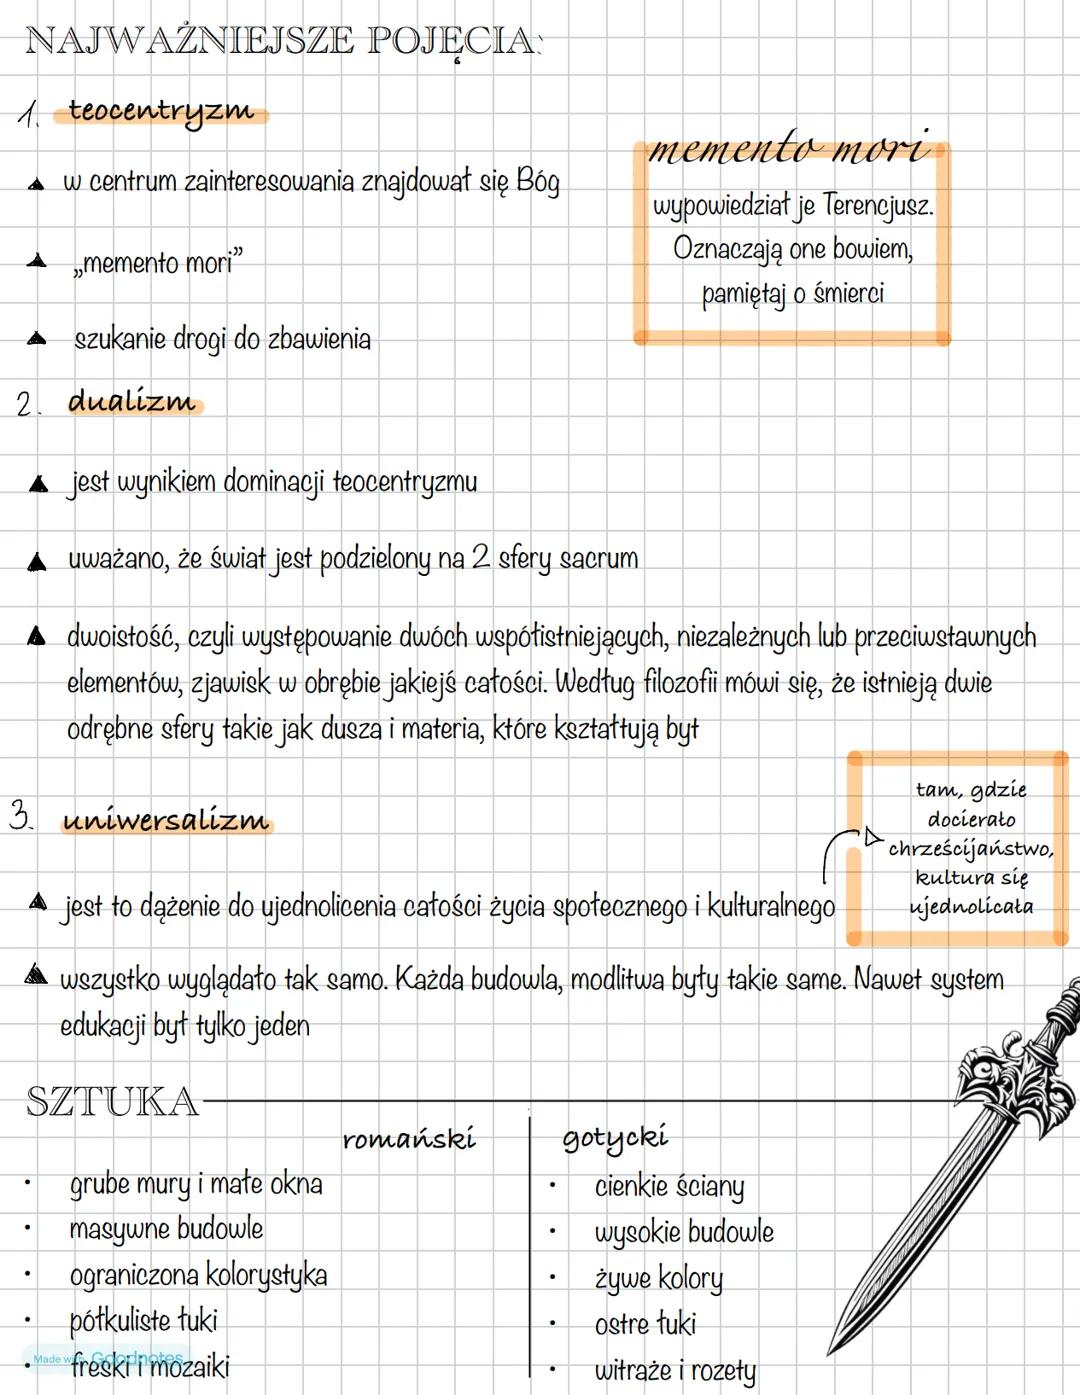 NAJWAŻNIEJSZE POJĘCIA:
1. teocentryzm
w centrum zainteresowania znajdował się Bóg
„memento mori”
szukanie drogi do zbawienia
memento mori
wypowiedział je Terencjusz.
Oznaczają one bowiem,
pamiętaj o śmierci
2. dualizm
jest wynikiem dominacji teocentryzmu
uważano, że świat jest podzielony na 2 sfery sacrum
dwoistość, czyli występowanie dwóch współistniejących, niezależnych lub przeciwstawnych
elementów, zjawisk w obrębie jakiejś całości. Według filozofii mówi się, że istnieją dwie
odrębne sfery takie jak dusza i materia, które kształtują byt
3. uniwersalizm
jest to dążenie do ujednolicenia całości życia społecznego i kulturalnego
tam, gdzie
docierało
chrześcijaństwo,
kultura się
ujednolicała
wszystko wyglądało tak samo. Każda budowla, modlitwa były takie same. Nawet system
edukacji był tylko jeden
SZTUKA
romański
• grube mury i małe okna
• masywne budowle
• ograniczona kolorystyka
• półkuliste łuki
• freski i mozaiki
gotycki
• cienkie ściany
• wysokie budowle
• żywe kolory
• ostre łuki
• witraże i rozety
Made with Goodnotes